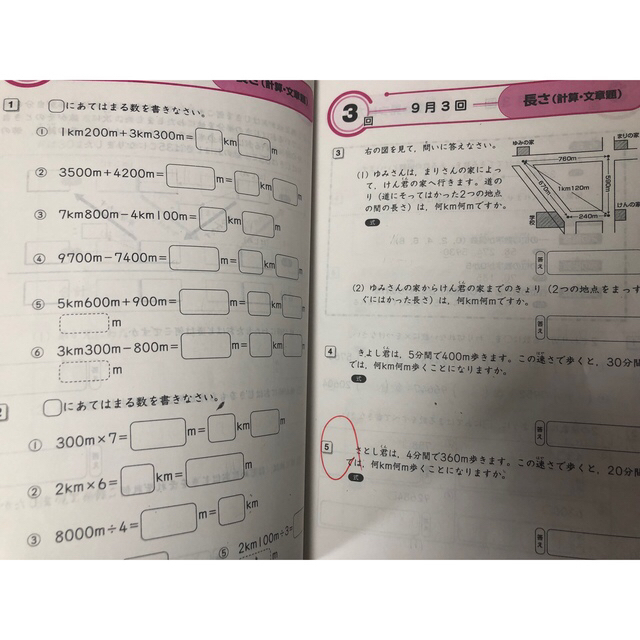 長さ(計算・文章題)
1 □にあてはまる数を書きなさい。
① 1km200m+3km300m=□km□m
② 3500m+4200m=□m=□km□m
③ 7km800m-4km100m=□km□m
④ 9700m-7400m=□m=□km□m
⑤ 5km600m+900m=□m=□km□m
□m
⑥ 3km300m-800m=□m=□km□m
□m
2 □にあてはまる数を書きなさい。
① 300m×7=□m=□km□m
② 2km×6=□km=□m
③ 8000m÷4=□m=□km
⑤ 2km100m÷3=
3回
9月3回
長さ(計算・文章題)
3 右の図を見て、問いに答えなさい。
(1) ゆみさんは、まりさんの家によっ
て、けん君の家へ行きます。道の
り(道にそってはかった2つの地点
の間の長さ)は、何km何mですか。
式
ゆみの家
まりの家
760m
590m
870m
1km120m
240m
けんの家
答え
(2) ゆみさんの家からけん君の家までのきょり(2つの地点をまっす
ぐにはかった長さ)は、何km何mですか。
答え
4 きよし君は、5分間で400m歩きます。この速さで歩くと、30分間
では、何km何m歩くことになりますか。
式
答え
5 さとし君は、4分間で360m歩きます。この速さで歩くと、20分間
では、何km何m歩くことになりますか。
式
答え